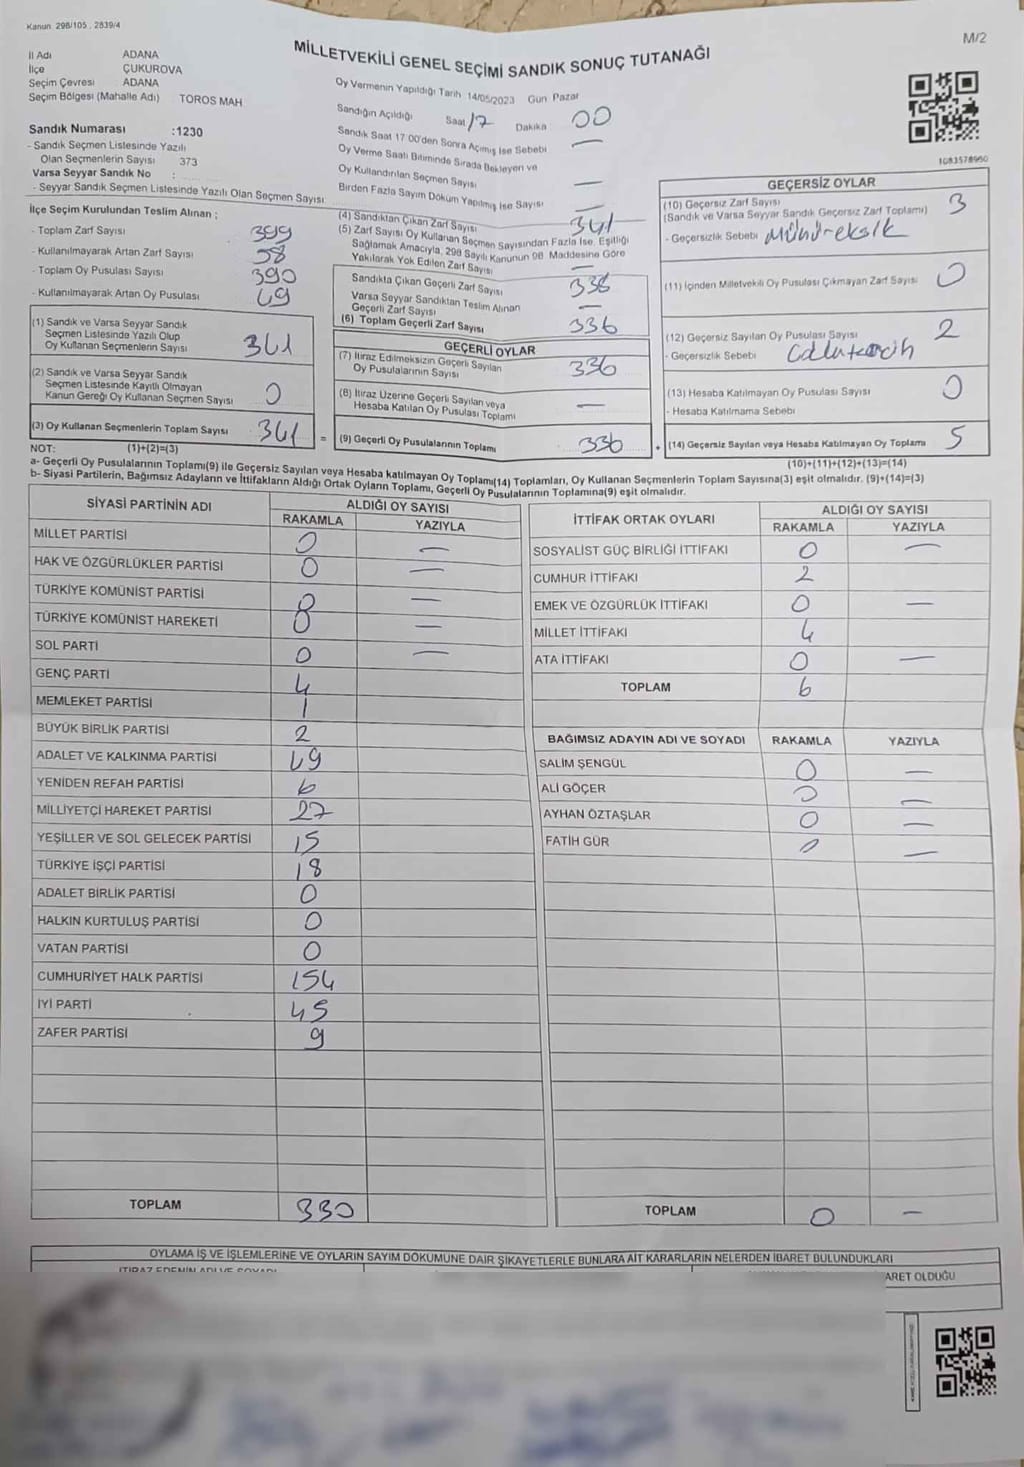 Kanun 298/105 , 2839/4
M/2
MİLLETVEKİLİ GENEL SEÇİMİ SANDIK SONUÇ TUTANAĞI
İl Adı ADANA
İlçe ÇUKUROVA
Seçim Çevresi ADANA
Seçim Bölgesi (Mahalle Adı) TOROS MAH
Sandık Numarası :1230
- Sandık Seçmen Listesinde Yazılı
Olan Seçmenlerin Sayısı 373
Varsa Seyyar Sandık No :
- Seyyar Sandık Seçmen Listesinde Yazılı Olan Seçmen Sayısı:
Oy Vermenin Yapıldığı Tarih 14/05/2023 Gün Pazar
Sandığın Açıldığı Saat 17 Dakika 00
Sandık Saat 17:00'den Sonra Açımış İse Sebebi —
Oy Verme Saati Bitiminde Sırada Bekleyen ve
Oy Kullandırılan Seçmen Sayısı —
Birden Fazla Sayım Döküm Yapılmış İse Sayısı —
1083578960
İlçe Seçim Kurulundan Teslim Alınan ;
- Toplam Zarf Sayısı 399
- Kullanılmayarak Artan Zarf Sayısı 58
- Toplam Oy Pusulası Sayısı 390
- Kullanılmayarak Artan Oy Pusulası 49
(1) Sandık ve Varsa Seyyar Sandık
Seçmen Listesinde Yazılı Olup
Oy Kullanan Seçmenlerin Sayısı 341
(2) Sandık ve Varsa Seyyar Sandık
Seçmen Listesinde Kayıtlı Olmayan
Kanun Gereği Oy Kullanan Seçmen Sayısı 0
(3) Oy Kullanan Seçmenlerin Toplam Sayısı 341
(4) Sandıktan Çıkan Zarf Sayısı 341
(5) Zarf Sayısı Oy Kullanan Seçmen Sayısından Fazla İse. Eşitliği
Sağlamak Amacıyla, 298 Sayılı Kanunun 98. Maddesine Göre
Yakılarak Yok Edilen Zarf Sayısı —
Sandıkta Çıkan Geçerli Zarf Sayısı 338
Varsa Seyyar Sandıktan Teslim Alınan
Geçerli Zarf Sayısı —
(6) Toplam Geçerli Zarf Sayısı 336
GEÇERLİ OYLAR
(7) İtiraz Edilmeksizin Geçerli Sayılan
Oy Pusulalarının Sayısı 336
(8) İtiraz Üzerine Geçerli Sayılan veya
Hesaba Katılan Oy Pusulası Toplamı —
= (9) Geçerli Oy Pusulalarının Toplamı 336
GEÇERSİZ OYLAR
(10) Geçersiz Zarf Sayısı 3
(Sandık ve Varsa Seyyar Sandık Geçersiz Zarf Toplamı)
- Geçersizlik Sebebi Mühüreksik
(11) İçinden Milletvekili Oy Pusulası Çıkmayan Zarf Sayısı 0
(12) Geçersiz Sayılan Oy Pusulası Sayısı 2
- Geçersizlik Sebebi
(13) Hesaba Katılmayan Oy Pusulası Sayısı 0
- Hesaba Katılmama Sebebi
+ (14) Geçersiz Sayılan veya Hesaba Katılmayan Oy Toplamı 5
NOT: (1)+(2)=(3)
(10)+(11)+(12)+(13)=(14)
a- Geçerli Oy Pusulalarının Toplamı(9) ile Geçersiz Sayılan veya Hesaba katılmayan Oy Toplamı(14) Toplamları, Oy Kullanan Seçmenlerin Toplam Sayısına(3) eşit olmalıdır. (9)+(14)=(3)
b- Siyasi Partilerin, Bağımsız Adayların ve İttifakların Aldığı Ortak Oyların Toplamı, Geçerli Oy Pusulalarının Toplamına(9) eşit olmalıdır.
SİYASİ PARTİNİN ADI ALDIĞI OY SAYISI
RAKAMLA YAZIYLA
MİLLET PARTİSİ 0 —
HAK VE ÖZGÜRLÜKLER PARTİSİ 0 —
TÜRKİYE KOMÜNİST PARTİSİ 0 —
TÜRKİYE KOMÜNİST HAREKETİ 0 —
SOL PARTİ 0 —
GENÇ PARTİ 4
MEMLEKET PARTİSİ 1
BÜYÜK BİRLİK PARTİSİ 2
ADALET VE KALKINMA PARTİSİ 49
YENİDEN REFAH PARTİSİ 6
MİLLİYETÇİ HAREKET PARTİSİ 27
YEŞİLLER VE SOL GELECEK PARTİSİ 15
TÜRKİYE İŞÇİ PARTİSİ 18
ADALET BİRLİK PARTİSİ 0
HALKIN KURTULUŞ PARTİSİ 0
VATAN PARTİSİ 0
CUMHURİYET HALK PARTİSİ 154
İYİ PARTİ 45
ZAFER PARTİSİ 9
TOPLAM 330
İTTİFAK ORTAK OYLARI ALDIĞI OY SAYISI
RAKAMLA YAZIYLA
SOSYALİST GÜÇ BİRLİĞİ İTTİFAKI 0 —
CUMHUR İTTİFAKI 2
EMEK VE ÖZGÜRLÜK İTTİFAKI 0 —
MİLLET İTTİFAKI 4
ATA İTTİFAKI 0 —
TOPLAM 6
BAĞIMSIZ ADAYIN ADI VE SOYADI RAKAMLA YAZIYLA
SALİM ŞENGÜL 0 —
ALİ GÖÇER 0 —
AYHAN ÖZTAŞLAR 0 —
FATİH GÜR 0 —
TOPLAM 0 —
OYLAMA İŞ VE İŞLEMLERİNE VE OYLARIN SAYIM DÖKÜMÜNE DAİR ŞİKAYETLERLE BUNLARA AİT KARARLARIN NELERDEN İBARET BULUNDUKLARI
İTİRAZ EDENİN ADI VE SOYADI
ARET OLDUĞU